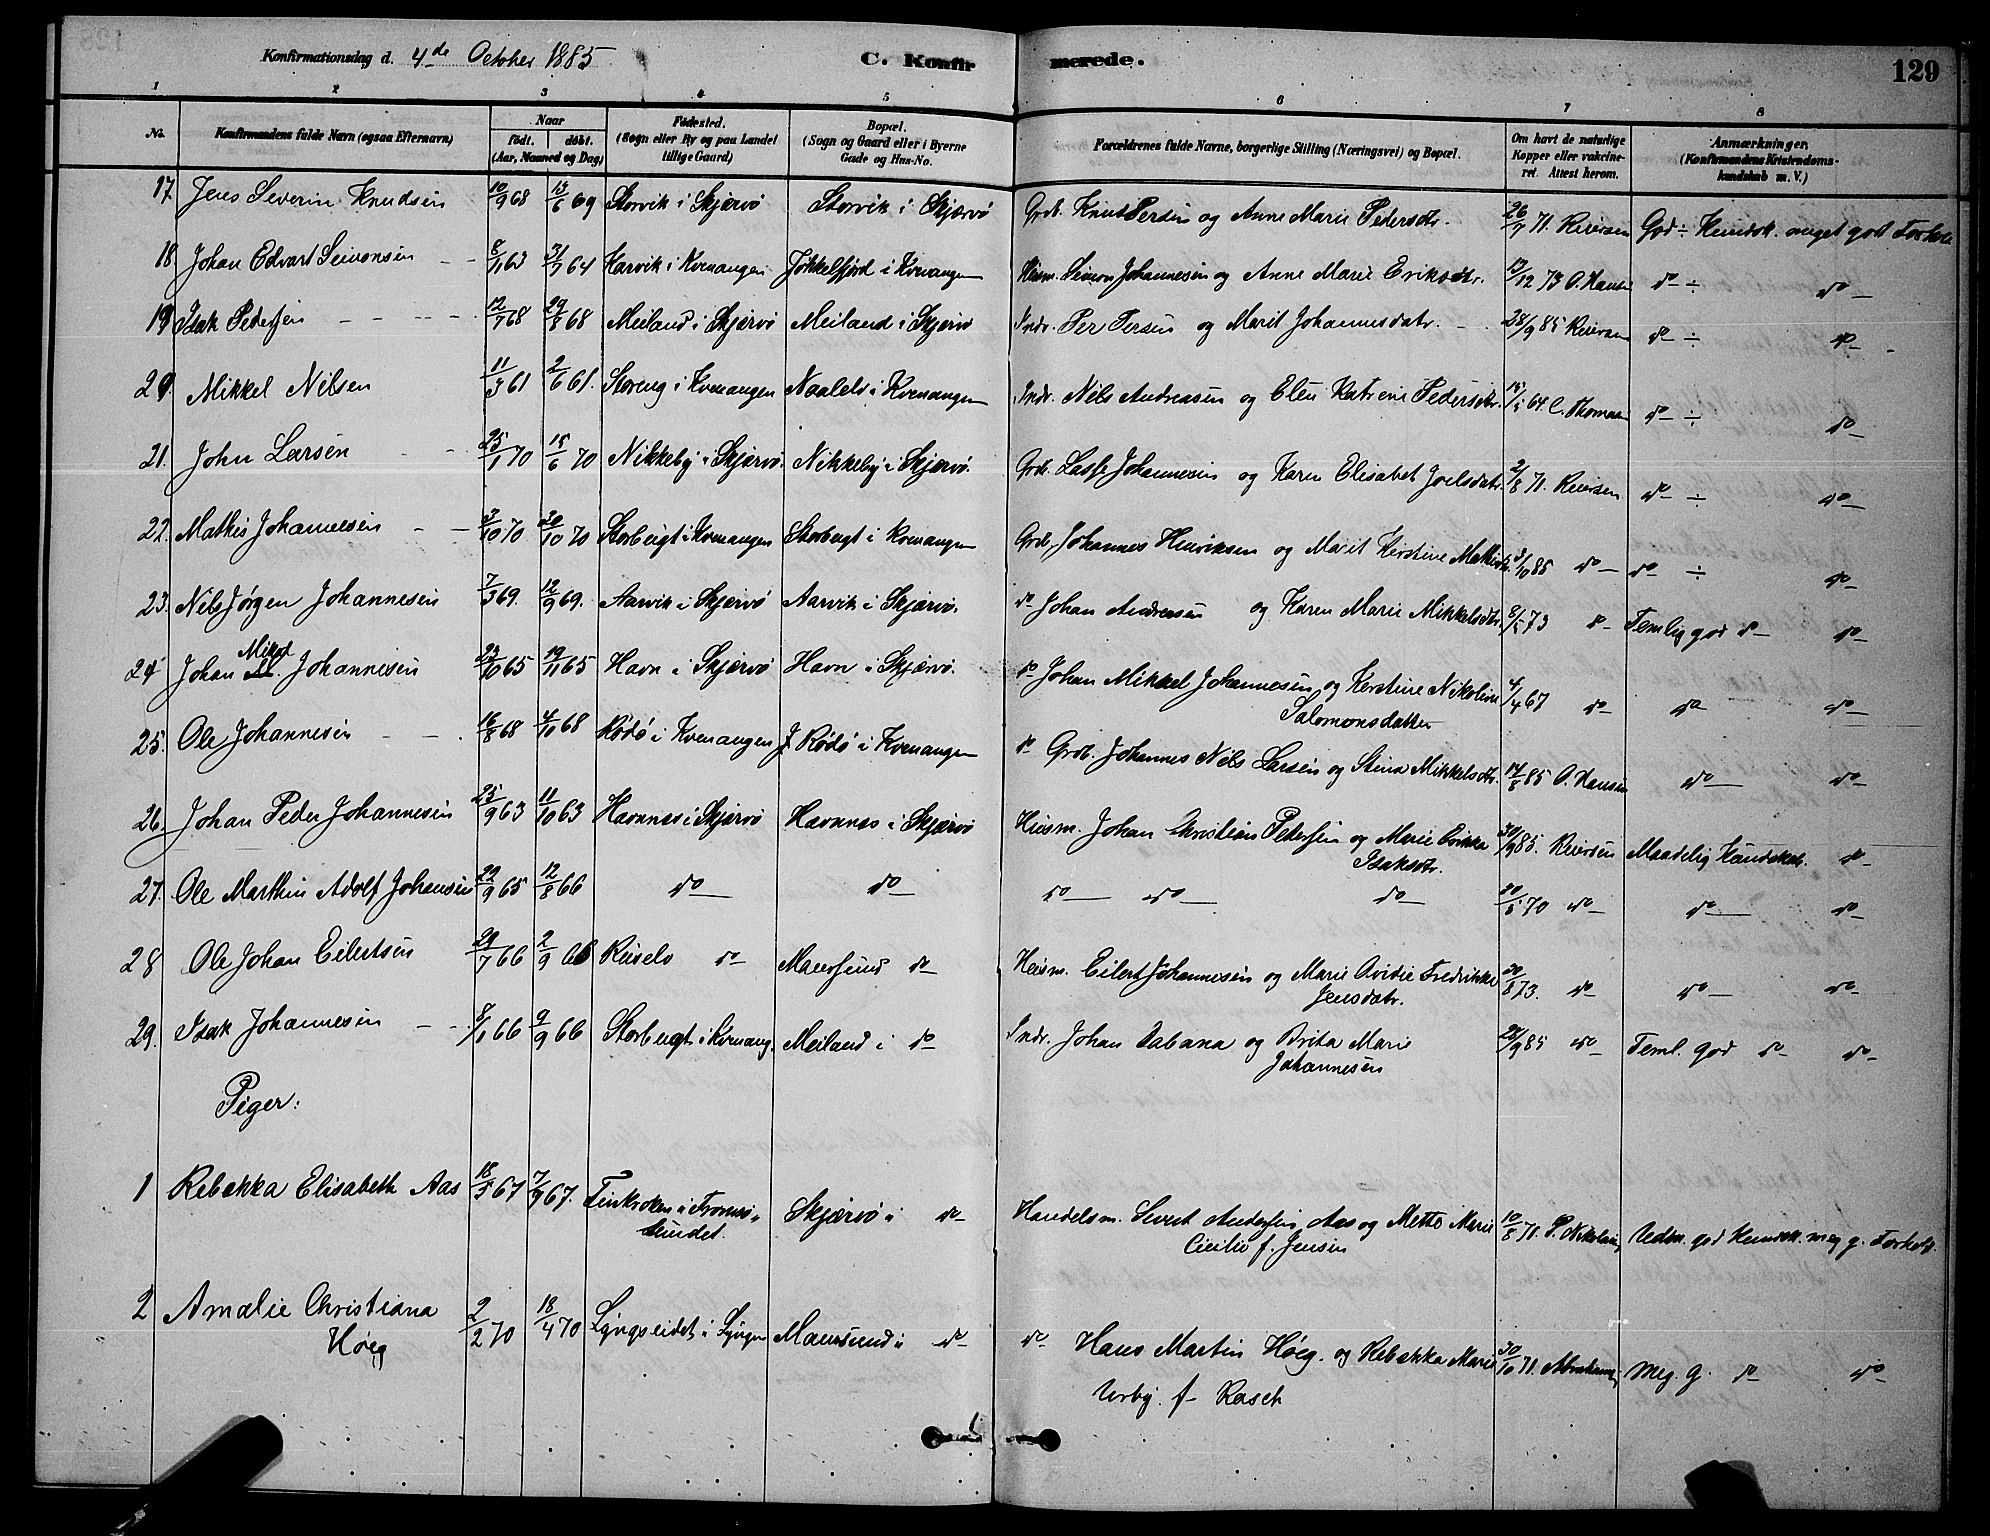 Konfirmationsdag d. 4de October 1885 C. Konfirmerede. 129
1 2 3 4 5 6 7 8
No. Konfirmandens fulde Navn (ogsaa Efternavn) Naar født. døbt. (Aar, Maaned og Dag) Fødested. (Sogn eller By og paa Landet tillige Gaard) Bopæl. (Sogn og Gaard eller i Byerne Gade og Hus-No. Forældrenes fulde Navne, borgerlige Stilling (Næringsvei) og Bopæl. Om havt de naturlige Kopper eller vakcineret. Attest herom. Anmærkninger. (Konfirmandens Kristendomskundskab m. V.)
17. Jens Severin Knudsen 10/9 68 13/6 69 Storvik i Skjærvö Storvik i Skjærvö Grdb. Knud Persen og Anne Marie Pedersdtr. 26/7 71. Reiersen God ÷ Kundsk. meget godt Forhold
18. Johan Edvart Simonsen 8/11 63 31/7 64 Karvik i Kvenangen Jøkkelfjord i Kvenangen Husm. Simon Johannesen og Anne Marie Eriksdtr. 13/12 73 O. Hansen do ÷ do
19 Isak Pedersen 12/7 68 29/8 68 Meiland i Skjærvö Meiland i Skjærvö Indr. Per Persen og Marit Johannesdatr. 28/9 85 Reiersen do ÷ do
20. Mikkel Nilsen 11/3 61 2/6 61. Storeng i Kvenangen Naalels i Kvenangen Indr. Nils Andreasen og Elen Katrine Pedersdtr. 64. C. Thomasen do ÷ do
21. John Larsen 25/1 70 15/6 70 Nikkeby i Skjærvö Nikkeby i Skjærvö. Grdb. Lasse Johannesen og Karen Elisabet Joelsdatr. 2/8 71. Reiersen do ÷ do
22. Mathis Johannesen 3/10 70 30/10 70 Storbugt i Kvenangen Storbugt i Kvenangen Grdb. Johannes Henriksen og Marit Kirstine Mathisdtr. 3/10 85 do do ÷ do
23. Nils Jørgen Johannesen 7/3 69. 12/9 69. Aarvik i Skjærvö Aarvik i Skjærvö. do Johan Andreasen og Karen Marie Mikkelsdtr. 8/5 73 do Temlig god do do
24 Johan Mikal Johannesen 23/10 65 19/11 65 Havn i Skjærvö Havn i Skjærvö. do Johan Mikkel Johannesen og Kirstine Nikoline Salomonsdatter 4/4 67 do do do
25. Ole Johannesen 16/8 68 4/10 68 Rödö i Kvenangen Rödö i Kvenangen do Grdb. Johannes Nils Larsen og Stina Mikkelsdtr. 14/8 85 O. Hansen do do
26. Johan Peder Johannesen 25/9 63 11/10 63 Havnnes i Skjærvö Havnnes i Skjærvö Husm. Johan Christian Petersen og Marie Evikka Isaksdtr. 30/9 85. Reiersen Maadelig Kundskab. do
27. Ole Marthin Adolf Johansen 22/9 65 12/8 66 do do do do do 20/5 70 do do do
28 Ole Johan Eilertsen 29/7 66 2/9 66 Reiselv do Maursund do Husm. Eilert Johannesen og Marie Ovidie Fredrikke Jensdatr. 20/8 73. do do do
29. Isak Johannesen 8/1 66 9/9 66 Storbugt i Kvenang. Meiland i do Indr. Johan Dabana og Brita Marie Johannesen 28/9 85 do Teml. god do do
Piger:
1 Rebekka Elisabeth Aas 18/5 67 7/7 67. Finkroken i Tromsösundet. Skjærvö i do Handelsm. Sivert Andersen Aas og Mette Marie Cicilie f. Jensen 10/8 71. P. Nikolaisen Udm. god Kundsk. meg g. Forhold.
2 Amalie Christiana Høeg 2/2 70 18/4 70 Lyngseidet i Lyngen Maursund i do do Hans Martin Høeg. og Rebekka Marie Urby. f- Rasch 30/10 71. Abrahamsen Meg. g. do do